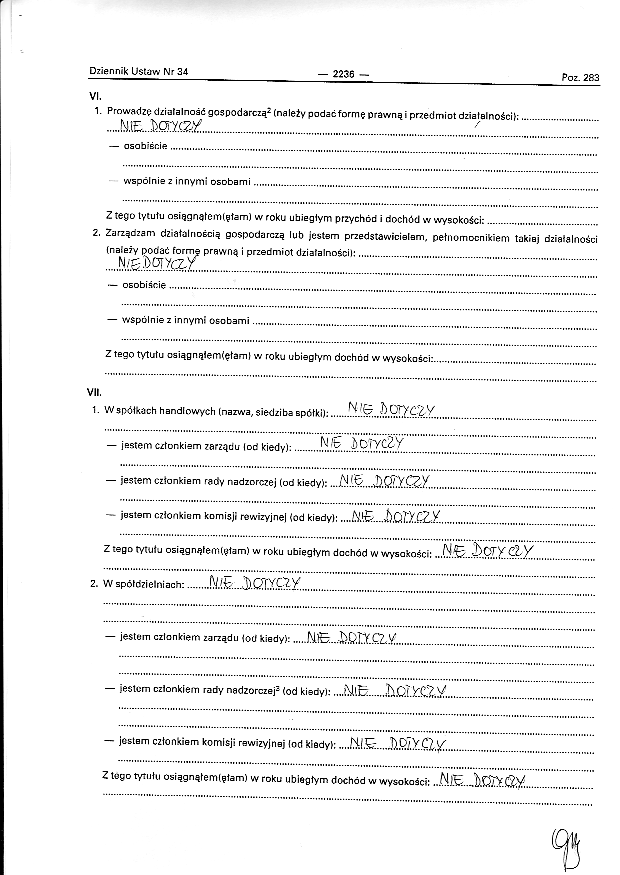 Dziennik Ustaw Nr 34 — 2236 — Poz. 283
VI.
1. Prowadzę działalność gospodarczą² (należy podać formę prawną i przedmiot działalności):
NIE DOTYCZY
— osobiście
— wspólnie z innymi osobami
Z tego tytułu osiągnąłem(ęłam) w roku ubiegłym przychód i dochód w wysokości:
2. Zarządzam działalnością gospodarczą lub jestem przedstawicielem, pełnomocnikiem takiej działalności
(należy podać formę prawną i przedmiot działalności):
NIE DOTYCZY
— osobiście
— wspólnie z innymi osobami
Z tego tytułu osiągnąłem(ęłam) w roku ubiegłym dochód w wysokości:
VII.
1. W spółkach handlowych (nazwa, siedziba spółki): NIE DOTYCZY
— jestem członkiem zarządu (od kiedy): NIE DOTYCZY
— jestem członkiem rady nadzorczej (od kiedy): NIE DOTYCZY
— jestem członkiem komisji rewizyjnej (od kiedy): NIE DOTYCZY
Z tego tytułu osiągnąłem(ęłam) w roku ubiegłym dochód w wysokości: NIE DOTYCZY
2. W spółdzielniach: NIE DOTYCZY
— jestem członkiem zarządu (od kiedy): NIE DOTYCZY
— jestem członkiem rady nadzorczej³ (od kiedy): NIE DOTYCZY
— jestem członkiem komisji rewizyjnej (od kiedy): NIE DOTYCZY
Z tego tytułu osiągnąłem(ęłam) w roku ubiegłym dochód w wysokości: NIE DOTYCZY